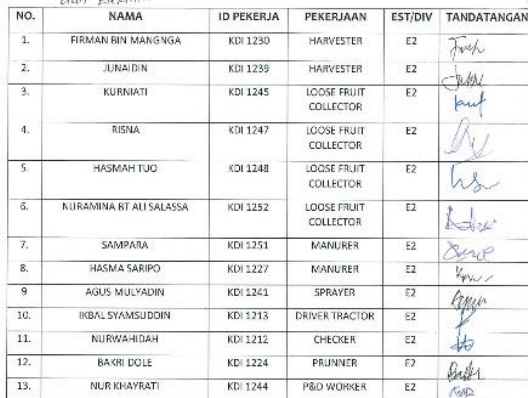 NO. NAMA ID PEKERJA PEKERJAAN EST/DIV TANDATANGAN
1. FIRMAN BIN MANGNGA KDI 1230 HARVESTER E2
2. JUNAIDIN KDI 1239 HARVESTER E2
3. KURNIATI KDI 1245 LOOSE FRUIT E2
COLLECTOR
4. RISNA KDI 1247 LOOSE FRUIT E2
COLLECTOR
5. HASMAH TUO KDI 1248 LOOSE FRUIT E2
COLLECTOR
6. NURAMINA BT ALI SALASSA KDI 1252 LOOSE FRUIT E2
COLLECTOR
7. SAMPARA KDI 1251 MANURER E2
8. HASMA SARIPO KDI 1227 MANURER E2
9 AGUS MULYADIN KDI 1241 SPRAYER E2
10. IKBAL SYAMSUDDIN KDI 1213 DRIVER TRACTOR E2
11. NURWAHIDAH KDI 1212 CHECKER E2
12. BAKRI DOLE KDI 1224 PRUNNER E2
13. NUR KHAYRATI KDI 1244 P&D WORKER E2